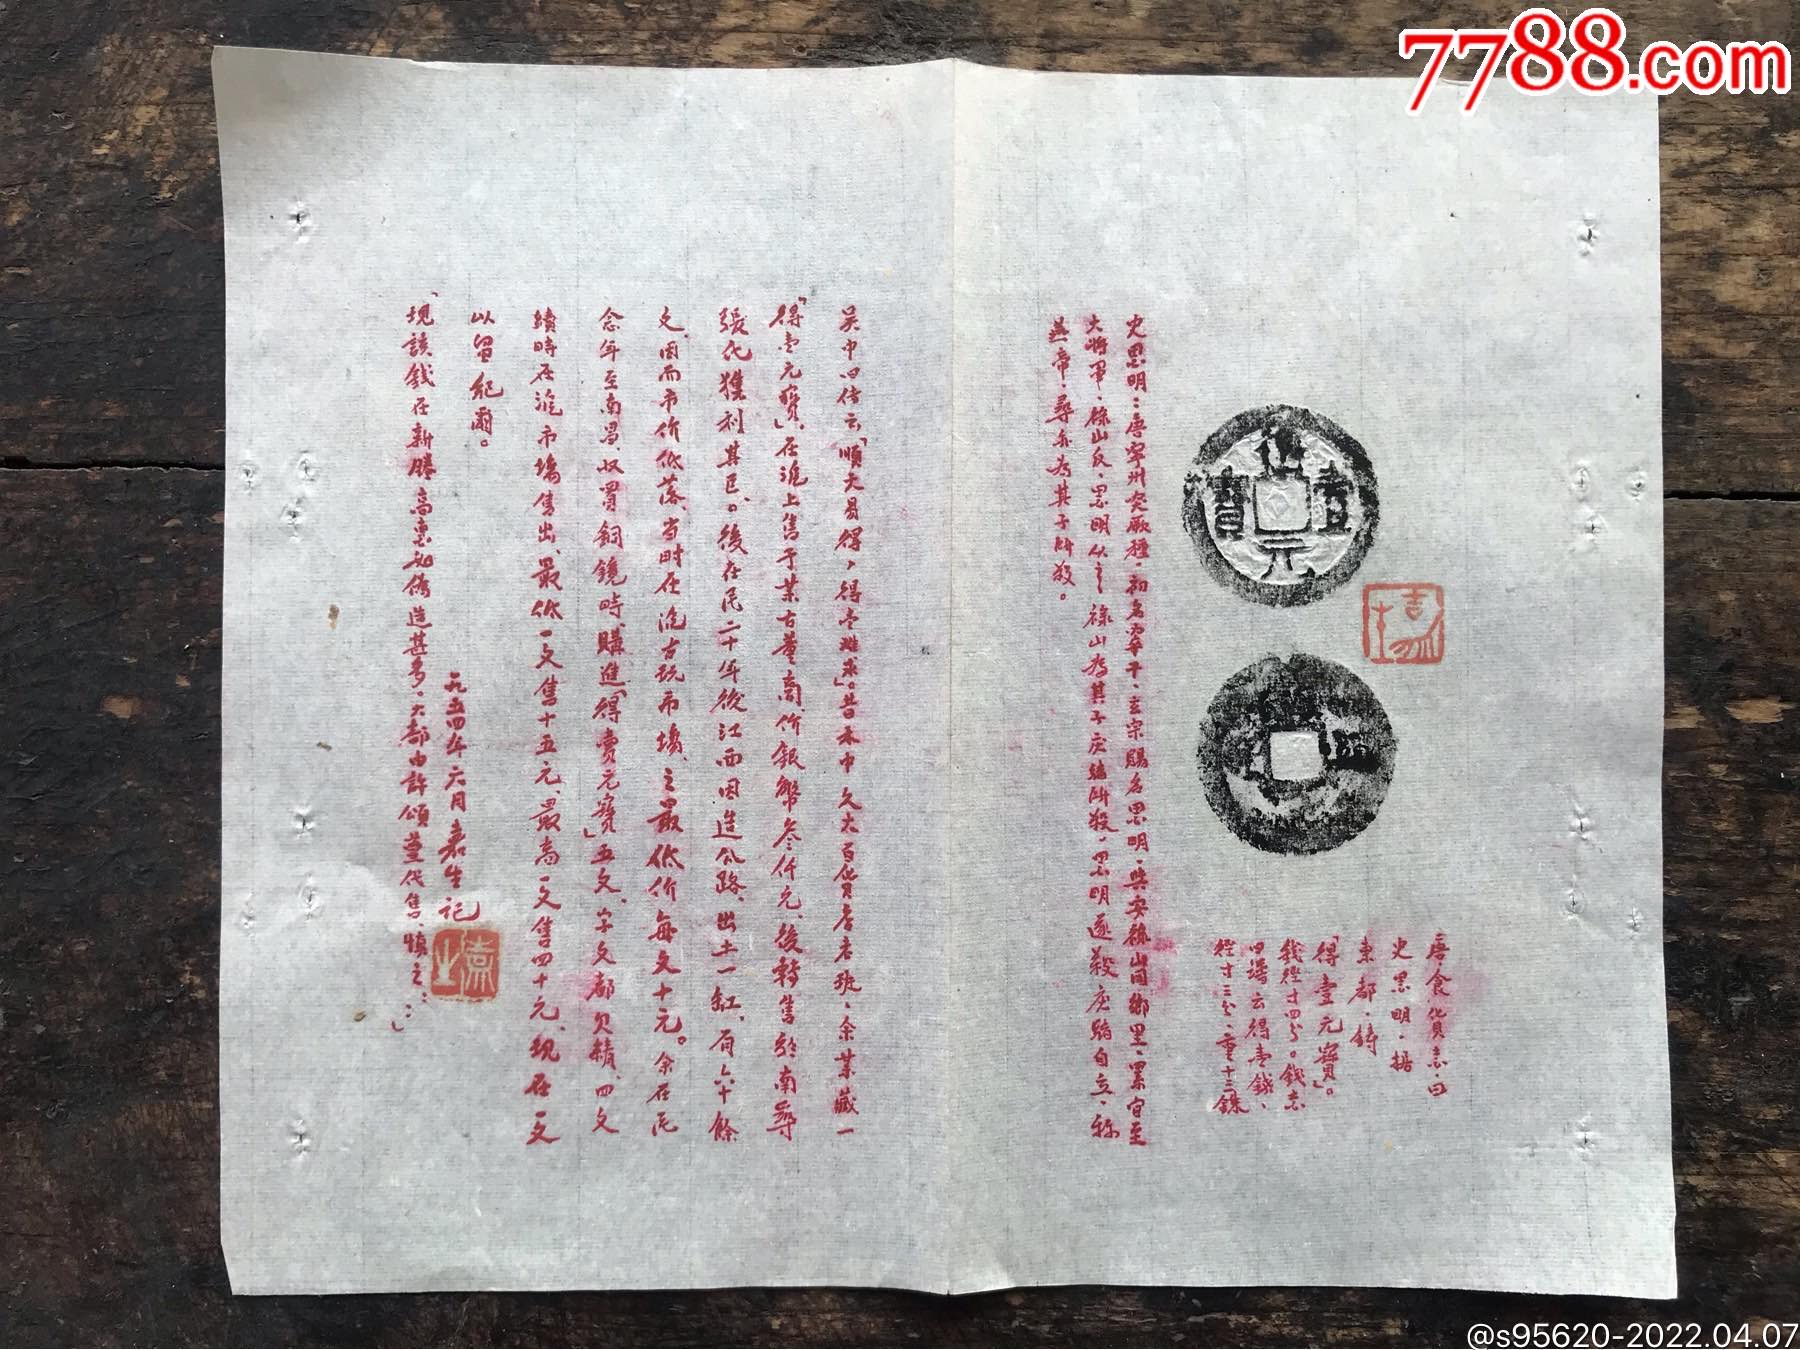 7788.com
得壹元寶
唐食貨志·曰
史思明·据
東都·鑄
「得壹元寶」。
錢徑寸四分。錢志
四譜云得壹錢、
徑寸三分、重十三銖
史思明：唐寧州突厥種·初名窣干·玄宗賜名思明·與安祿山同鄉里·累官至
大將軍·祿山反·思明从之 祿山為其子庆緒所殺·思明遂殺庆緒自立·称
燕帝·尋亦為其子所殺。
吳中口传云「順天易得，得壹难求」。昔禾中久大百貨店老班·余某藏一
「得壹元寶」在滬上售于某古董商、价銀幣叁仟元、後轉售於南尋
張化獲利其巨、。後在民二十年後江西因造公路、出土一缸、有六十餘
文、因而市价低落、当时在滬古玩市場、之最低价每文十元。余在民
念年至南昌、収買銅鏡時、購進「得壹元寶」五文、字文都欠精、四文
續時在滬市場售出、最低一文售十五元、最高一文售四十元、現在一文
以留紀爾。
一九五四年六月嘉生記
「現該錢在新勝高意如偽造甚多。大都由許頌董代售、慎之……」
@s95620-2022.04.07